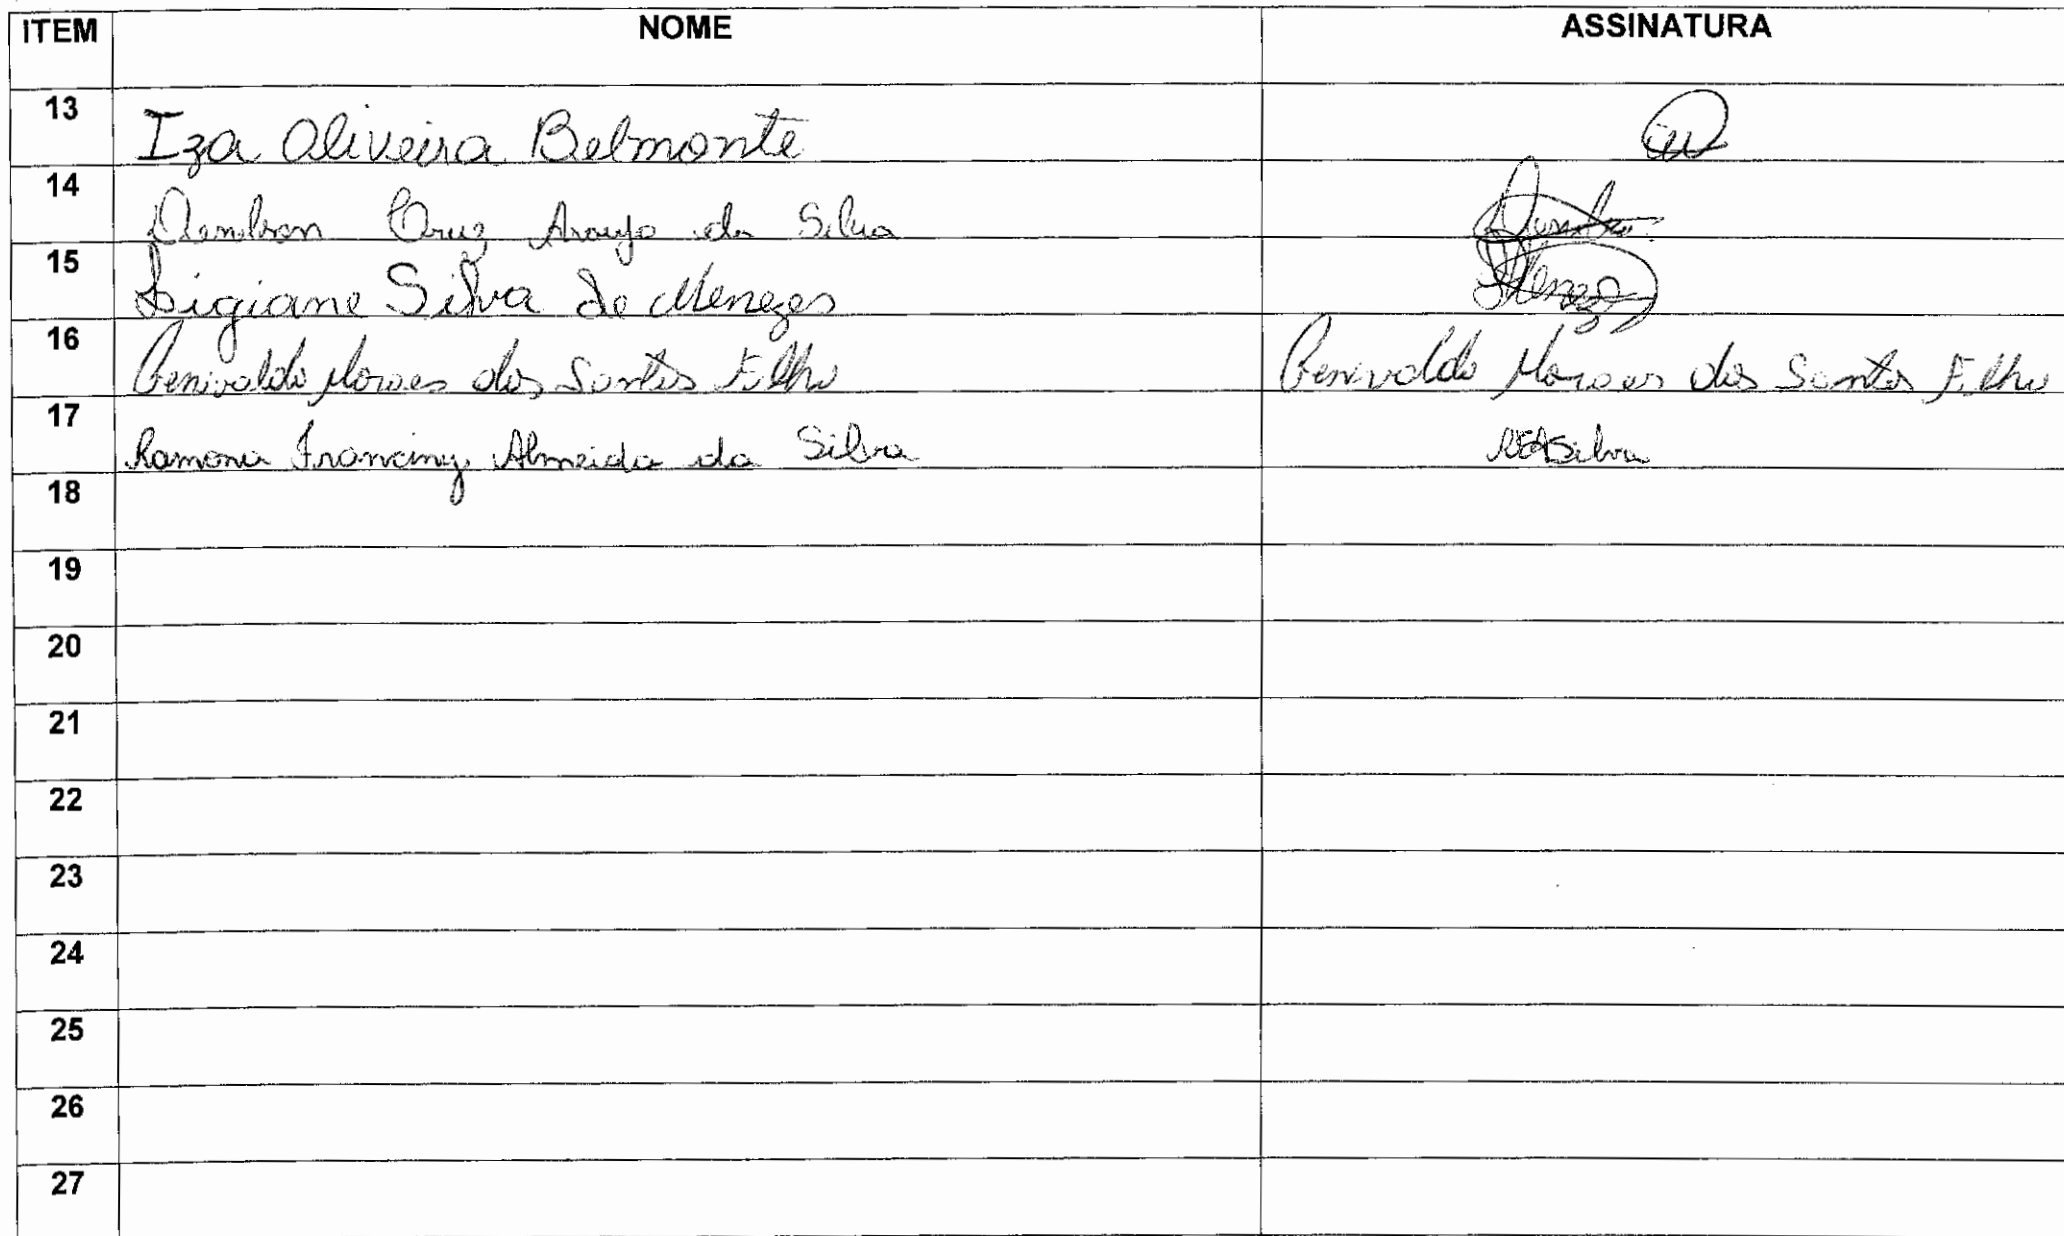 ITEM NOME ASSINATURA
13 Iza Oliveira Belmonte
14 Cruz Araujo da Silva
15 Ligiane Silva de Menezes
16 Genivaldo Moraes dos Santos Filho Genivaldo Moraes dos Santos Filho
17 Ramona Franciny Almeida da Silva RFASilva
18
19
20
21
22
23
24
25
26
27